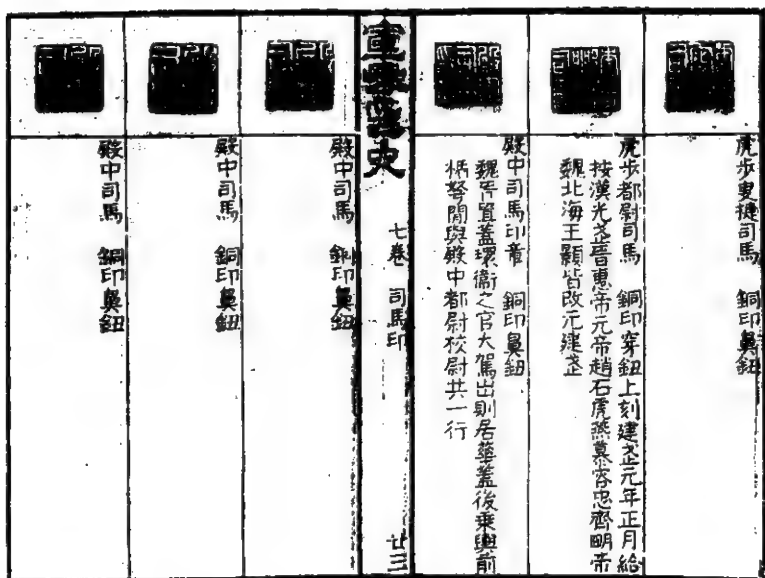 虎步叟㨗司馬 銅印鼻鈕
虎步都尉司馬 銅印穿鈕上刻建武元年正月給
按漢光武晉惠帝元帝趙石虎燕慕容忠齊明帝
魏北海王顥皆改元建武
殿中司馬印章 銅印鼻鈕
魏所置蓋環衛之官大駕出則居華蓋後乘輿前
弩閒與殿中都尉校尉共一行
史 七卷 司馬印 廿三
殿中司馬 銅印鼻鈕
殿中司馬 銅印鼻鈕
殿中司馬 銅印鼻鈕